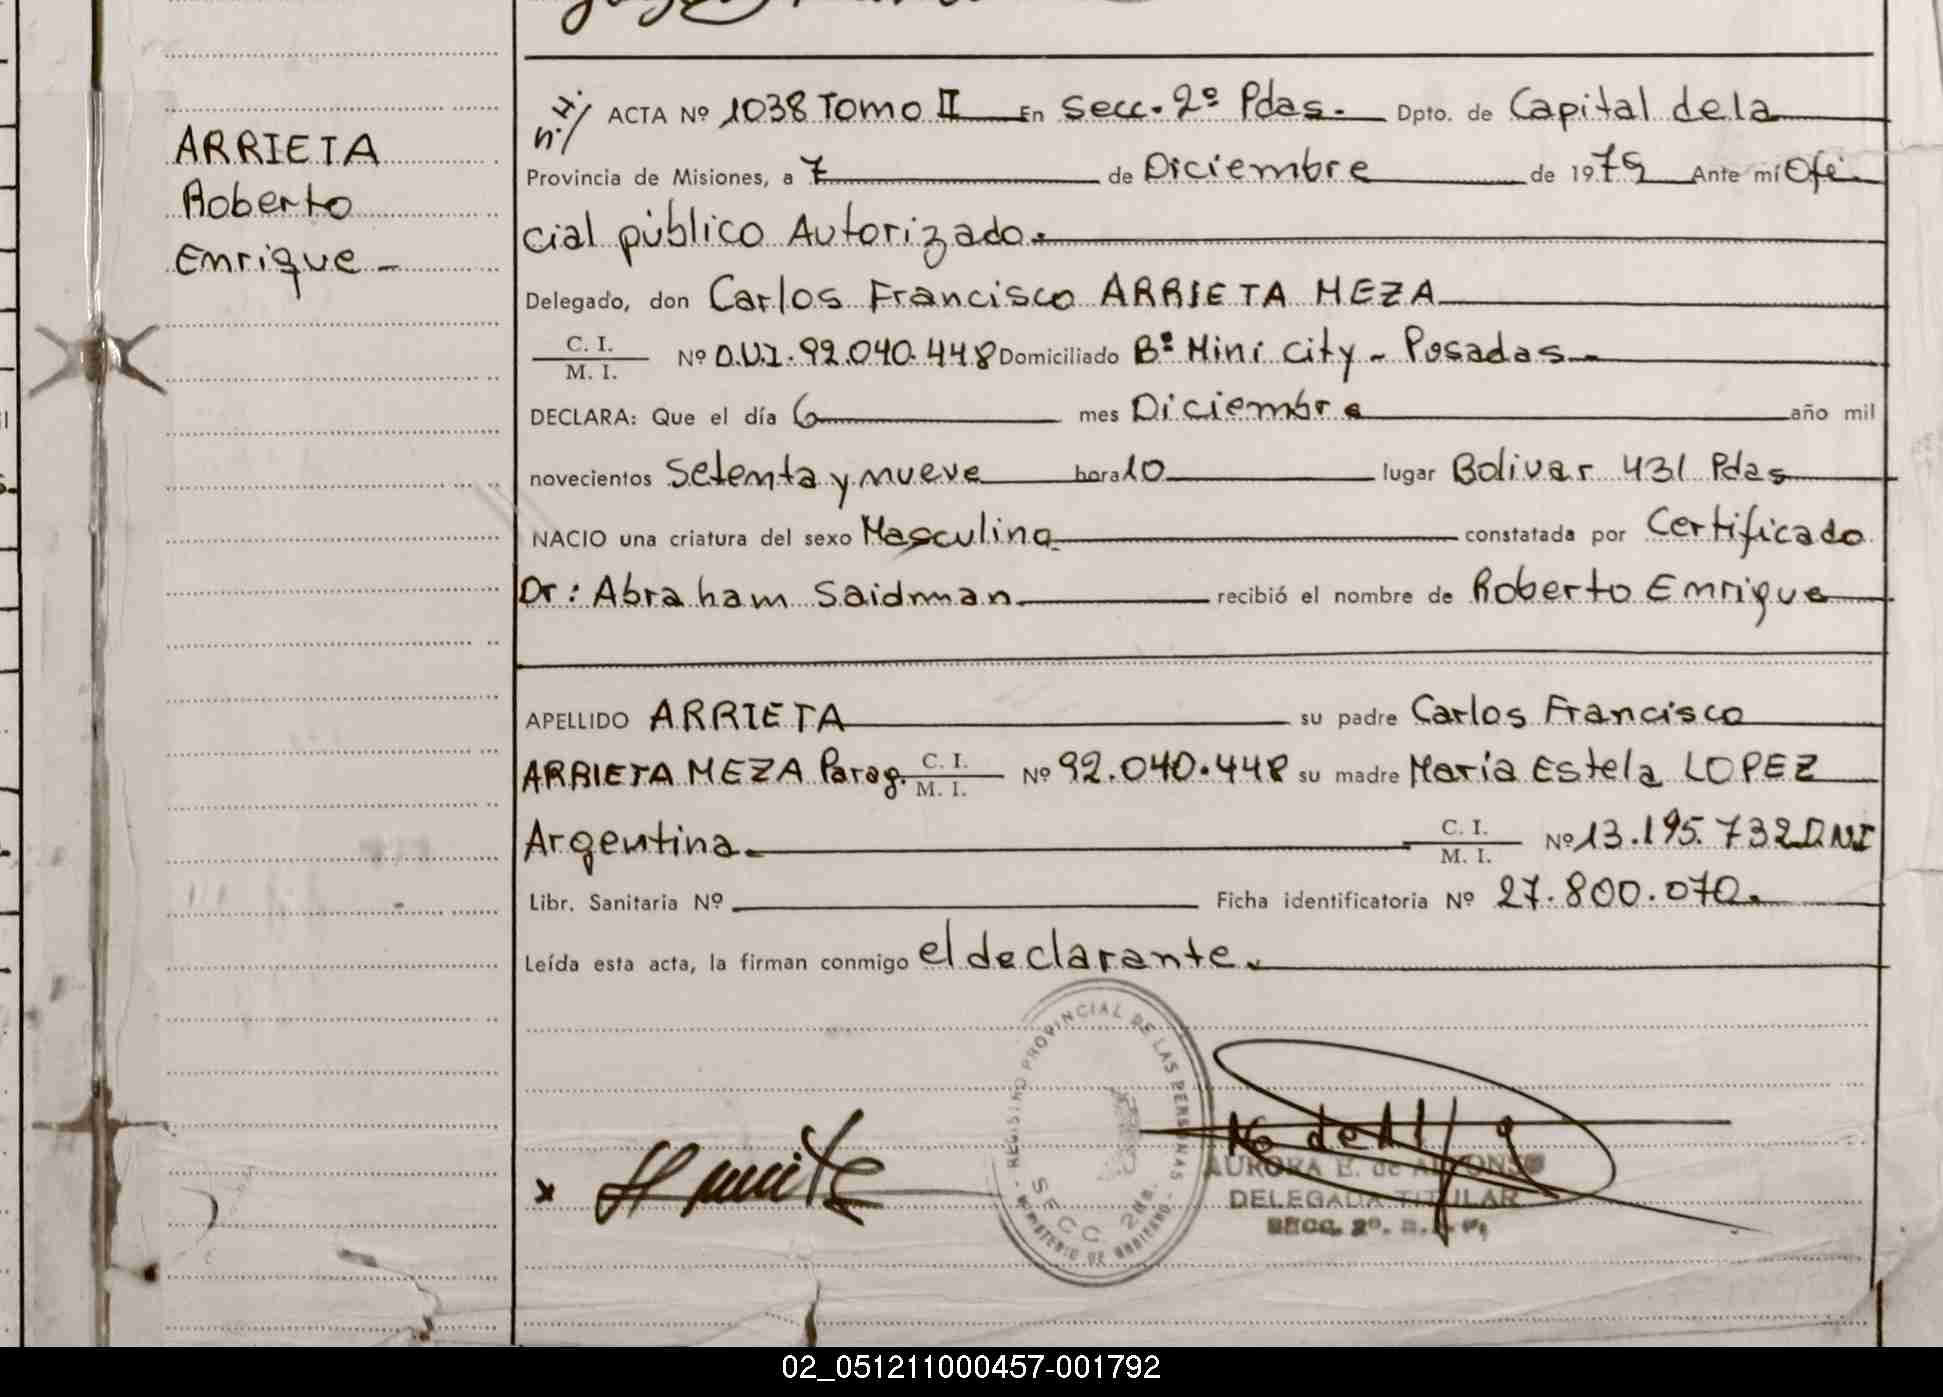 ARRIETA
Roberto
Enrique
ACTA Nº 1038 Tomo II En Secc. 2º Pdas. Dpto. de Capital de la
Provincia de Misiones, a 7 de Diciembre de 1979 Ante mí Ofi-
cial público Autorizado.
Delegado, don Carlos Francisco ARRIETA MEZA
C. I.
M. I. Nº D.U.I. 92.040.448 Domiciliado Bº Mini City - Posadas
DECLARA: Que el día 6 mes Diciembre año mil
novecientos Setenta y nueve hora 10 lugar Bolivar 431 Pdas
NACIO una criatura del sexo Masculino constatada por Certificado
Dr: Abraham Saidman recibió el nombre de Roberto Enrique
APELLIDO ARRIETA su padre Carlos Francisco
ARRIETA MEZA Parag. C. I. M. I. Nº 92.040.448 su madre María Estela LOPEZ
Argentina. C. I. M. I. Nº 13.195.732 D.N.I
Libr. Sanitaria Nº Ficha identificatoria Nº 27.800.070.
Leída esta acta, la firman conmigo el declarante.
REGISTRO PROVINCIAL DE LAS PERSONAS
SECC. 2da.
MINISTERIO DE GOBIERNO
AURORA E. de
DELEGADA TITULAR
SECC. 2º.
02_051211000457-001792